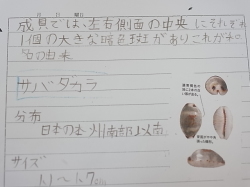 日 日 曜日
成貝では、左右側面の中央にそれぞれ
1個の大きな暗色斑がありこれが和
名の由来
サバダカラ
分布
日本の本州南部以南
サイズ